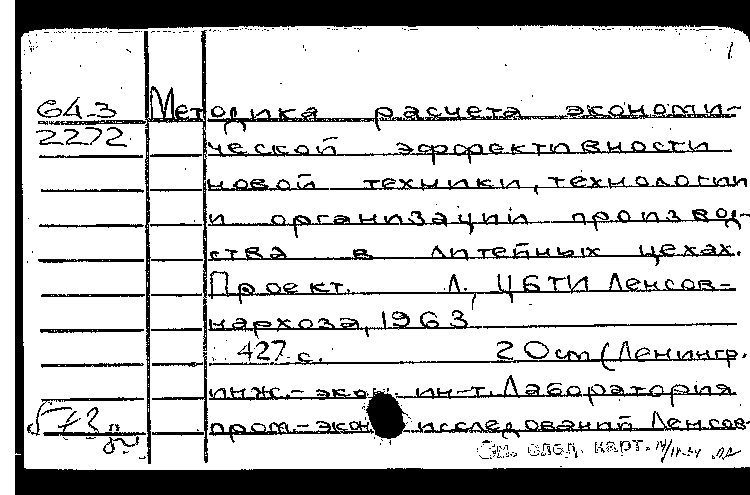 64-3 Методика расчета экономи-
2272 ческой эффективности
новой техники, технологии
и организации производ-
ства в литейных цехах.
Проект. Л., ЦБТИ Ленсов-
нархоза, 1963
427 с. 20 см (Ленингр.
инж.-экон. ин-т. Лаборатория
пром.-экон. исследований Ленсов-
См. след. карт.